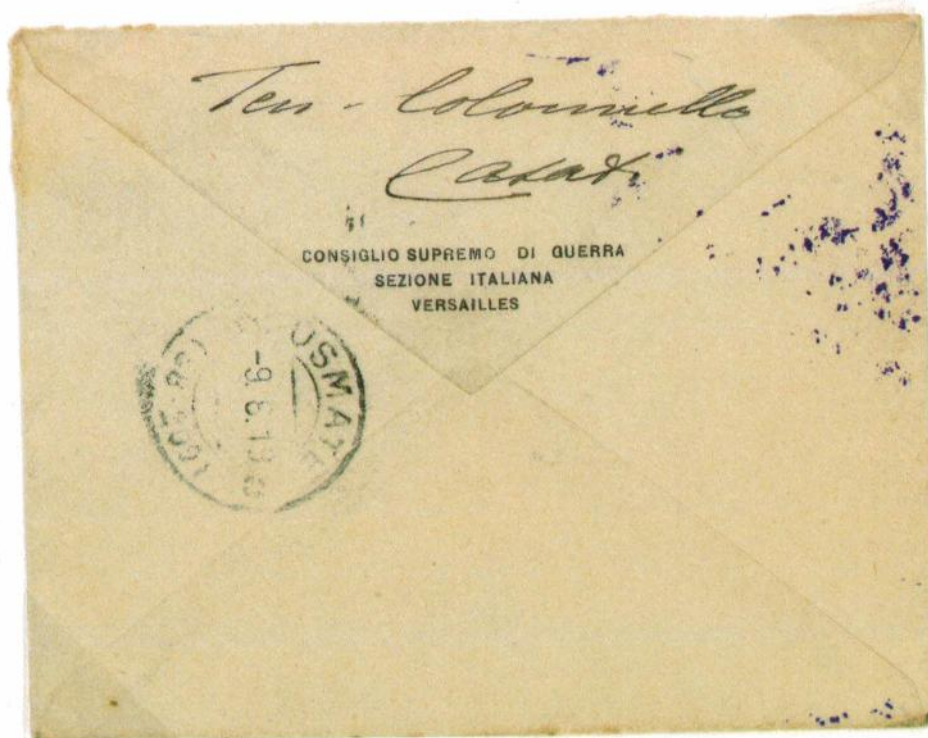 Ten - Colonnello
Casati
CONSIGLIO SUPREMO DI GUERRA
SEZIONE ITALIANA
VERSAILLES
USMATE
-9.6.19